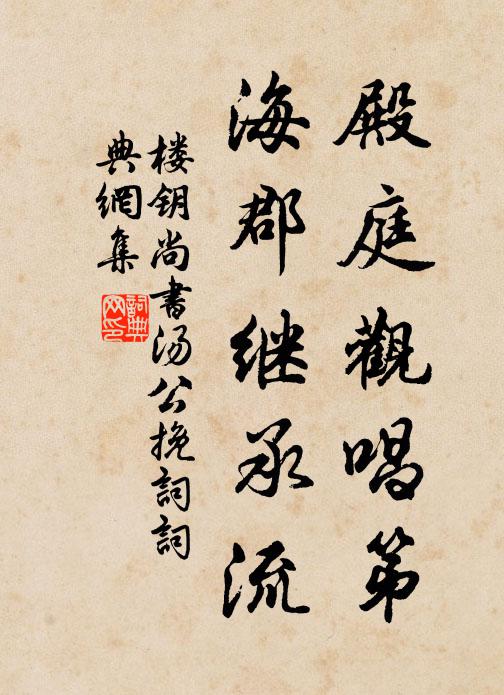 殿庭觀唱第
海郡继承流
楼钥尚書汤公挽詞詞
典網集
詞典网印